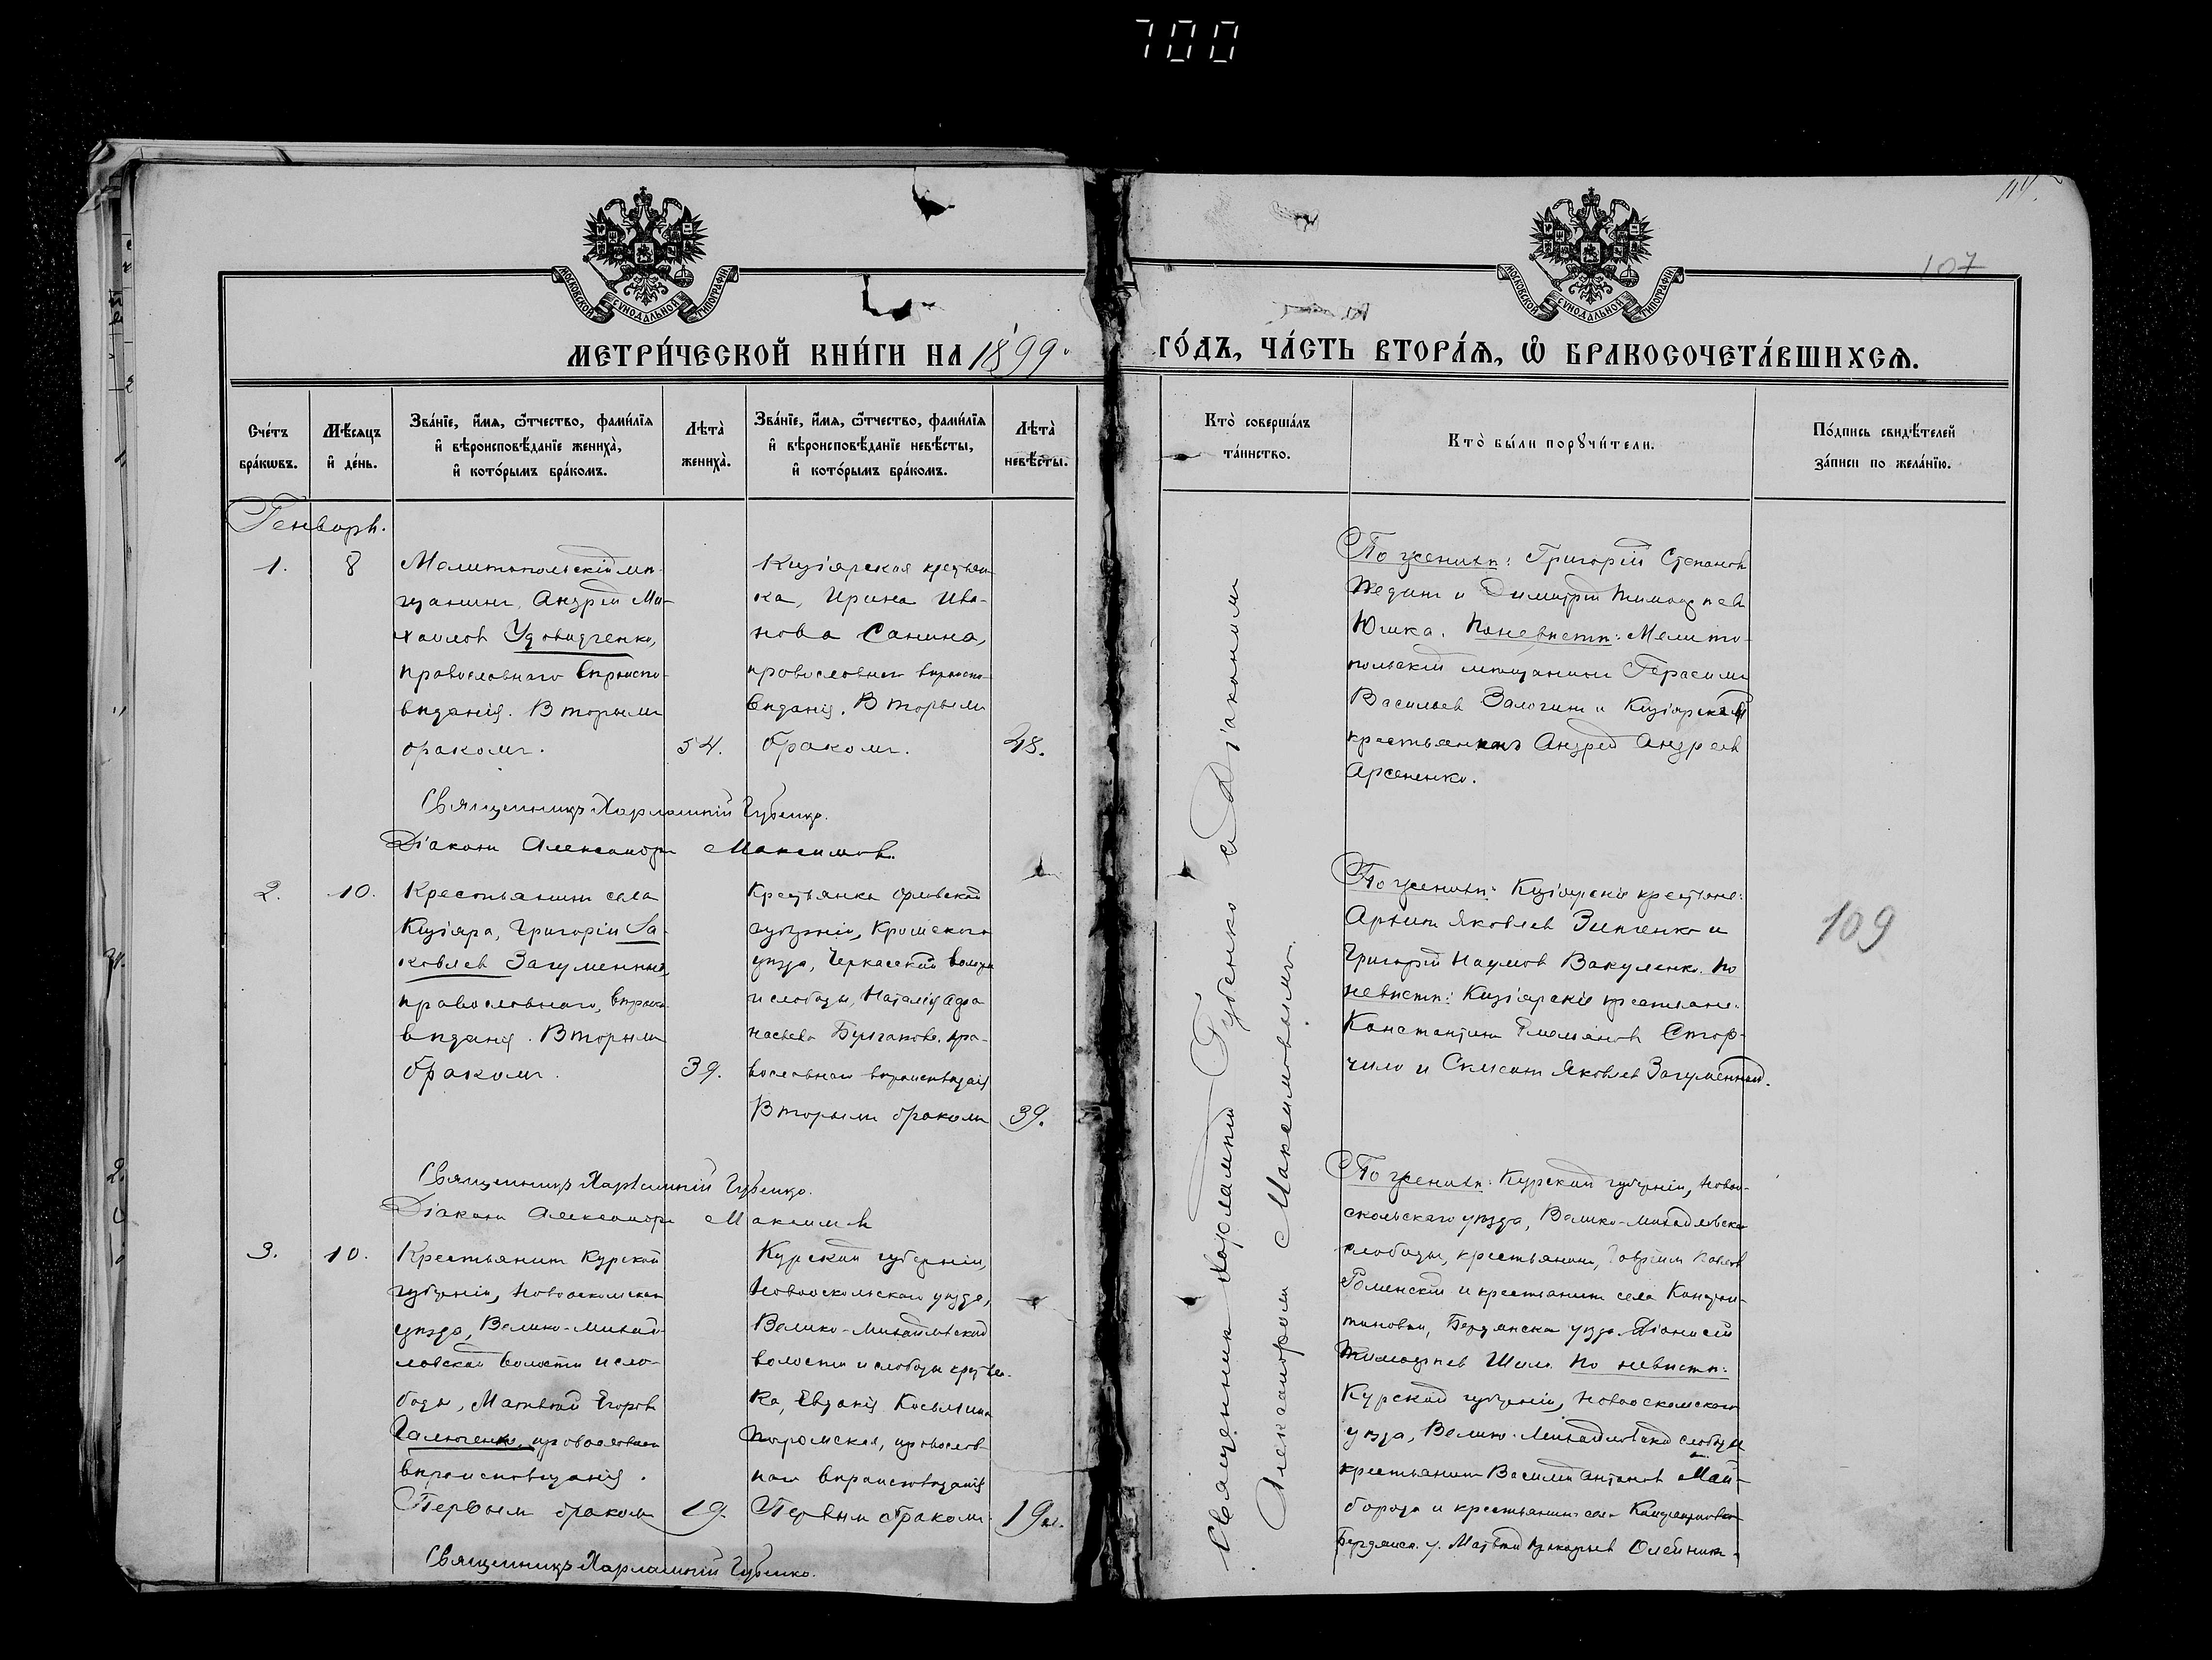 700
107
МОСКОВСКОЙ СѴНОДАЛЬНОЙ ТИПОГРАФІИ
МОСКОВСКОЙ СѴНОДАЛЬНОЙ ТИПОГРАФІИ
МЕТРИ́ЧЕСКОЙ КНИ́ГИ НА 1899 ГО́ДЪ, ЧА́СТЬ ВТОРА́Я, Ѡ БРАКОСОЧЕТА́ВШИХСЯ.
Сче́тъ
бра́кѡвъ.
Мѣ́сяцъ
и҆ де́нь.
Зва́нїе, и҆́мя, ѻ҆́тчество, фами́лїя
и҆ вѣроисповѣ́данїе жениха̀,
и҆ кото́рымъ бра́комъ.
Лѣта̀
жениха̀.
Зва́нїе, и҆́мя, ѻ҆́тчество, фами́лїя
и҆ вѣроисповѣ́данїе невѣ́сты,
и҆ кото́рымъ бра́комъ.
Лѣта̀
невѣ́сты.
Кто̀ соверша́лъ
та́инство.
Кто̀ бы́ли порꙋчи́тели.
По́дпись свидѣ́телей
за́писи по жела́нїю.
Генварь.
1.
8
Мелитопольскій мѣ-
щанинъ, Андрей Ми-
хаиловъ Удовидченко,
православнаго вѣроиспо-
вѣданія. Вторымъ
бракомъ.
54.
Кизіярская крестьян-
ка, Ирина Ива-
нова Санина,
православнаго вѣроиспо-
вѣданія. Вторымъ
бракомъ.
48.
По женихѣ: Григорій Степановъ
Дмитрій Тимоѳеевъ
Юшка. По невѣстѣ: Мелито-
польскій мѣщанинъ Герасимъ
Васильевъ Залогинъ и Кизіярскій
крестьянинъ Андрей Андреевъ
Арсененко.
Священникъ Харлампій Губенко.
Діаконъ Александръ Максимовъ.
2.
10.
Крестьянинъ села
Кизіяра, Григорій Іа-
ковлевъ Загуменный,
православнаго, вѣроиспо-
вѣданія. Вторымъ
бракомъ.
39.
Крестьянка Орловской
губерніи, Кромскаго
уѣзда, Черкасской волости
и слободы, Наталія Аѳа
насьева Булгакова, пра-
вославнаго вѣроисповѣданія
Вторымъ бракомъ
39.
По женихѣ: Кизіярскіе крестьяне:
Архипъ Яковлевъ Зинченко и
Григорій Наумовъ Вакуленко. По
невѣстѣ: Кизіярскіе крестьяне:
Константинъ Емельяновъ Стор-
чило и Яковлевъ Загуменный.
109
Священникъ Харлампій Губенко.
Діаконъ Александръ Максимовъ
3.
10.
Крестьянинъ Курской
губерніи, Новооскольскаго
уѣзда, Велико-Михай-
ловской волости и сло-
боды, Матвѣй Егоровъ
Галюченко, православнаго
вѣроисповѣданія.
Первымъ бракомъ
19.
Курской губерніи,
Новооскольскаго уѣзда,
Велико-Михайловской
волости и слободы крестьян-
ка, Евдокія Косьмина
православ-
наго вѣроисповѣданія
Первымъ бракомъ.
19 л.
По женихѣ: Курской губерніи, Новоо-
скольскаго уѣзда, Велико-Михайловской
слободы, крестьянинъ, Гавріилъ Павловъ
Роменскій и крестьянинъ села Констан-
тиновки, Бердянска уѣзда Діонисій
Тимоѳеевъ Шило. По невѣстѣ:
Курской губерніи, Новооскольскаго
уѣзда, Велико-Михайловской слободы
крестьянинъ Василій Антоновъ Май-
борода и крестьянинъ села Константиновки
Бердянск. у. Матвѣй Олейникъ.
Священникъ Харлампій Губенко.
Священникъ Харлампій Губенко съ Діакономъ
Александромъ Максимовымъ.